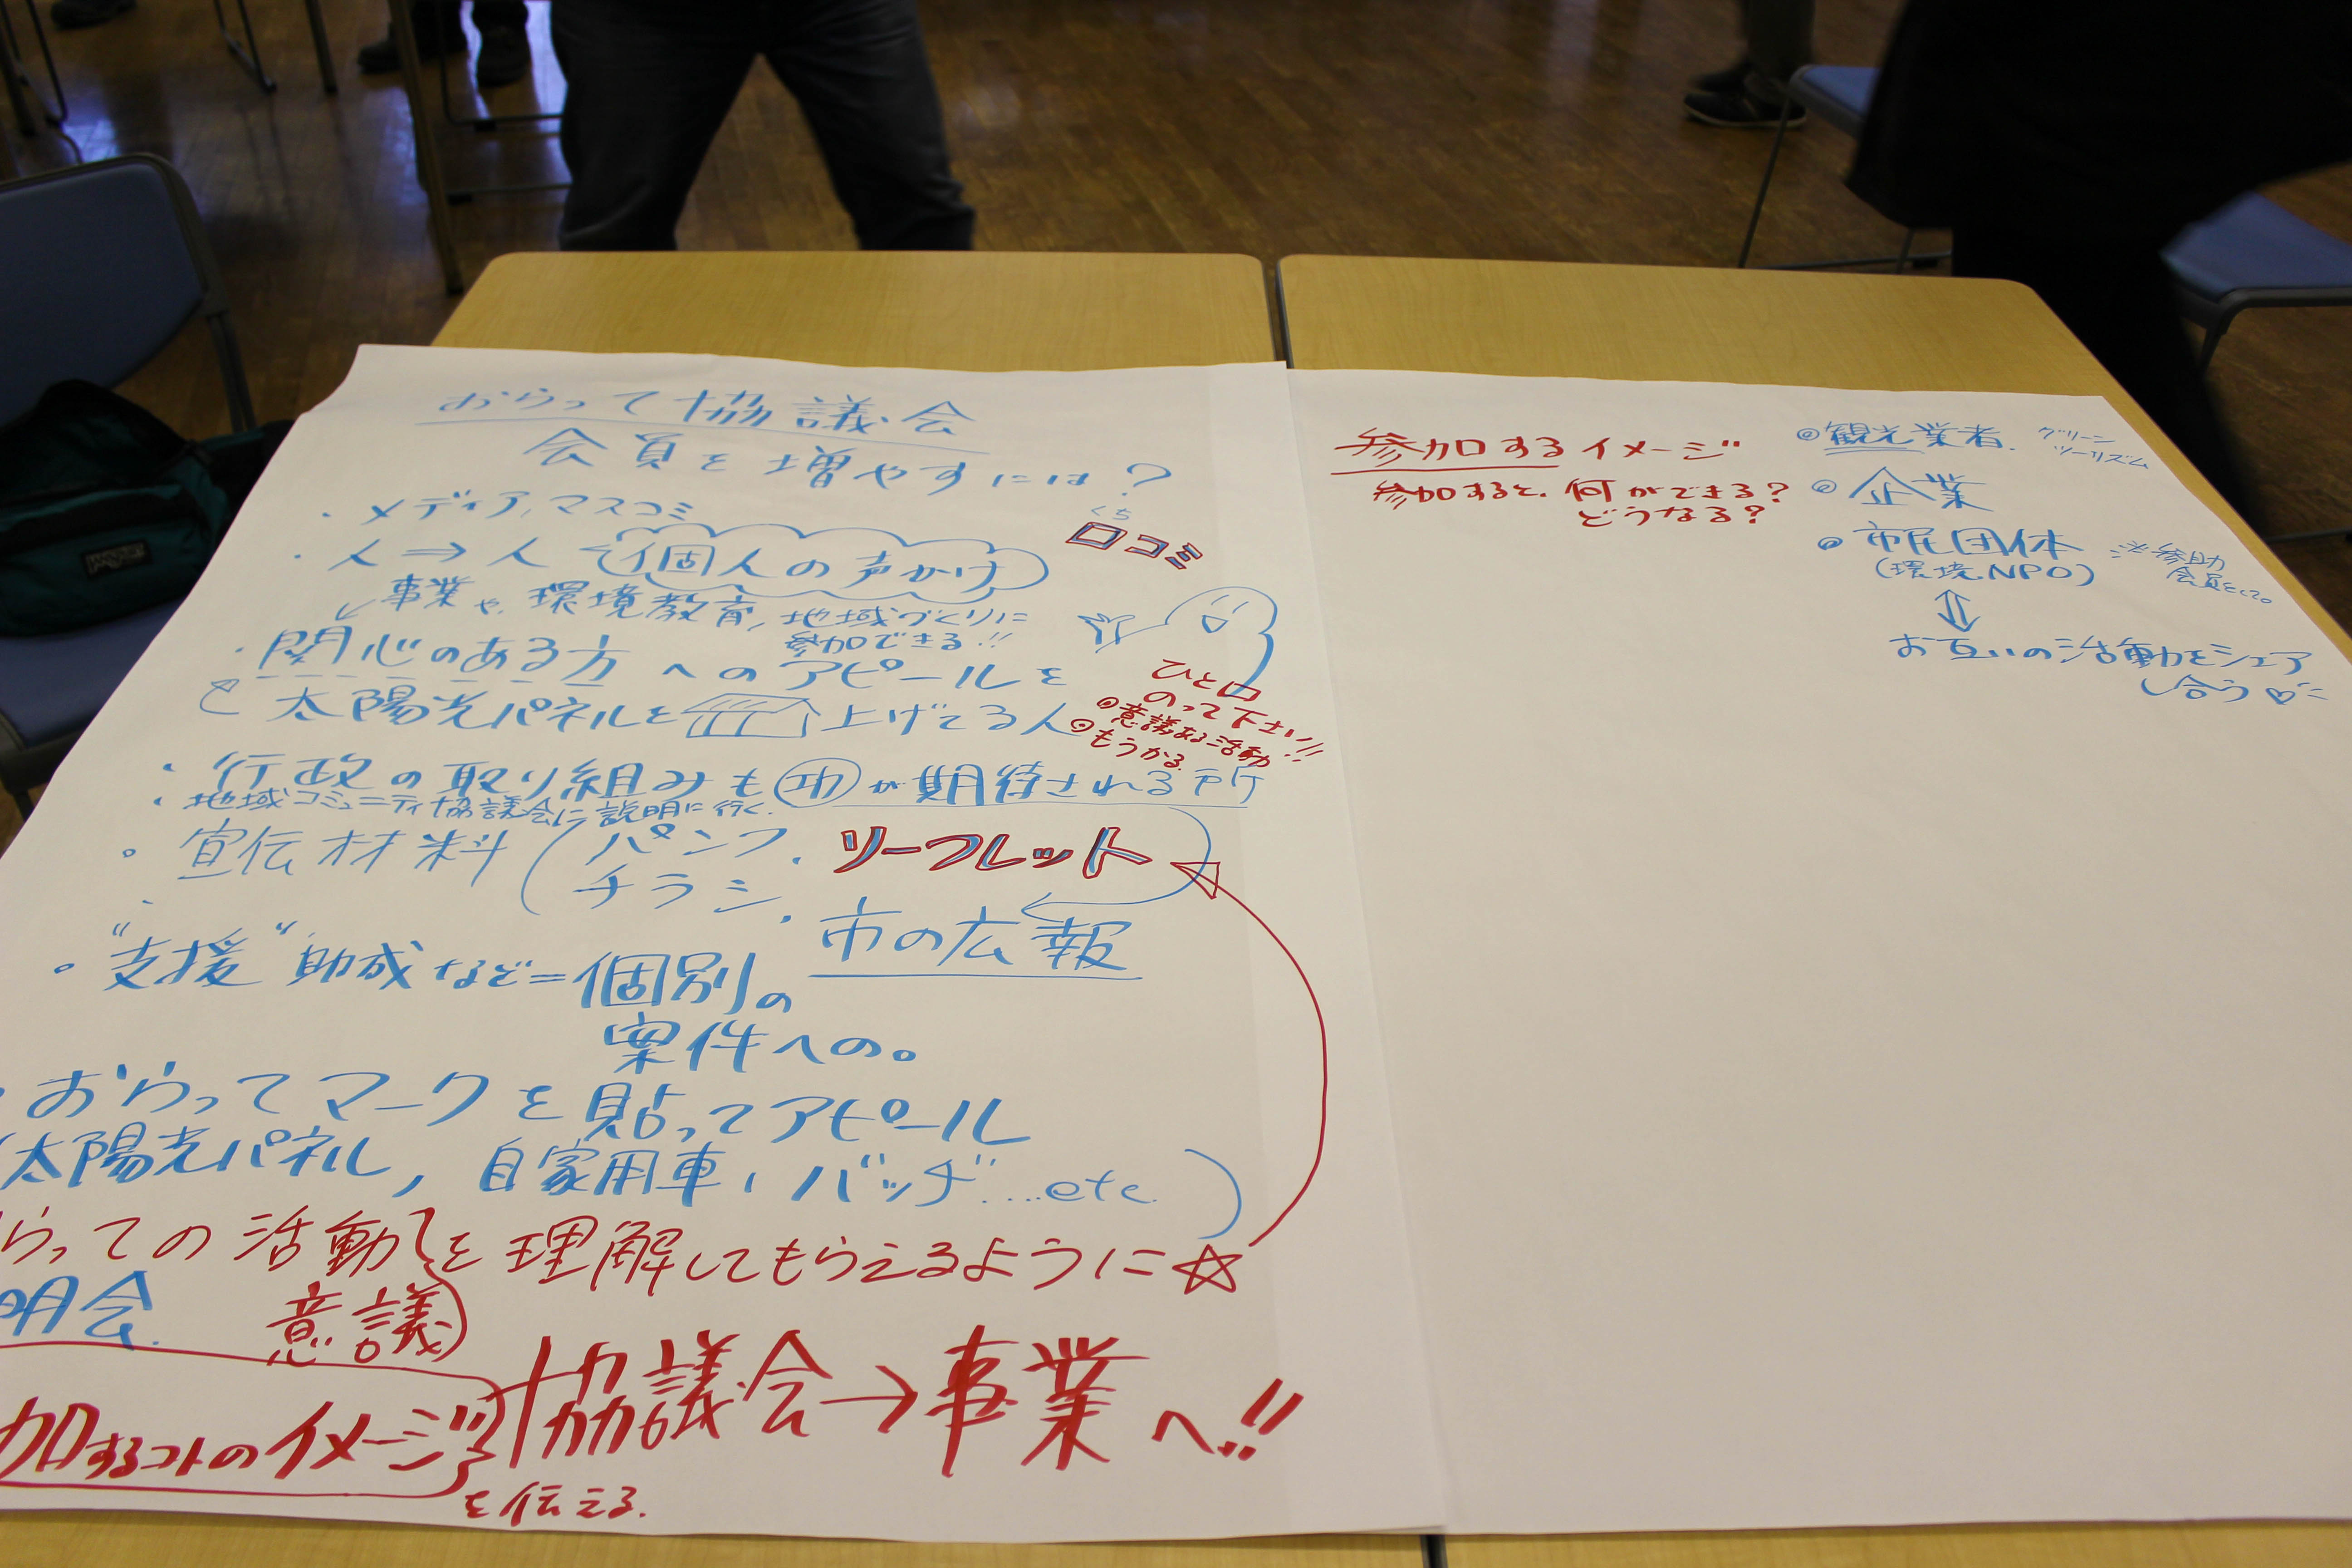 おらって協議会
会員を増やすには?
・メディア,マスコミ
・人⇒人 個人の声かけ
くち
口コミ
事業や、環境教育,地域づくりに
参加できる!!
・関心のある方へのアピールを
太陽光パネルを 上げてる人
ひと口
のって下さい!!
◎意議ある活動
◎もうかる
・行政の取り組みも㓛が期待される所
・地域コミュニティ協議会に説明に行く.
・宣伝材料(パンフ、リーフレット
チラシ、市の広報
・"支援"助成など=個別の
案件への。
・おらってマークを貼ってアピール
(太陽光パネル,自家用車,バッヂ....etc.)
らっての活動を理解してもらえるように☆
意議
明会.
加するコトのイメージ
を伝える.
協議会→事業へ!!
参加するイメージ
参加すると、何ができる?
どうなる?
◎観光業者. グリーンツーリズム
◎企業
◎市民団体
(環境NPO)
※参助
会員として。
⇕
お互いの活動をシェア
し合う♡
JANSPORT